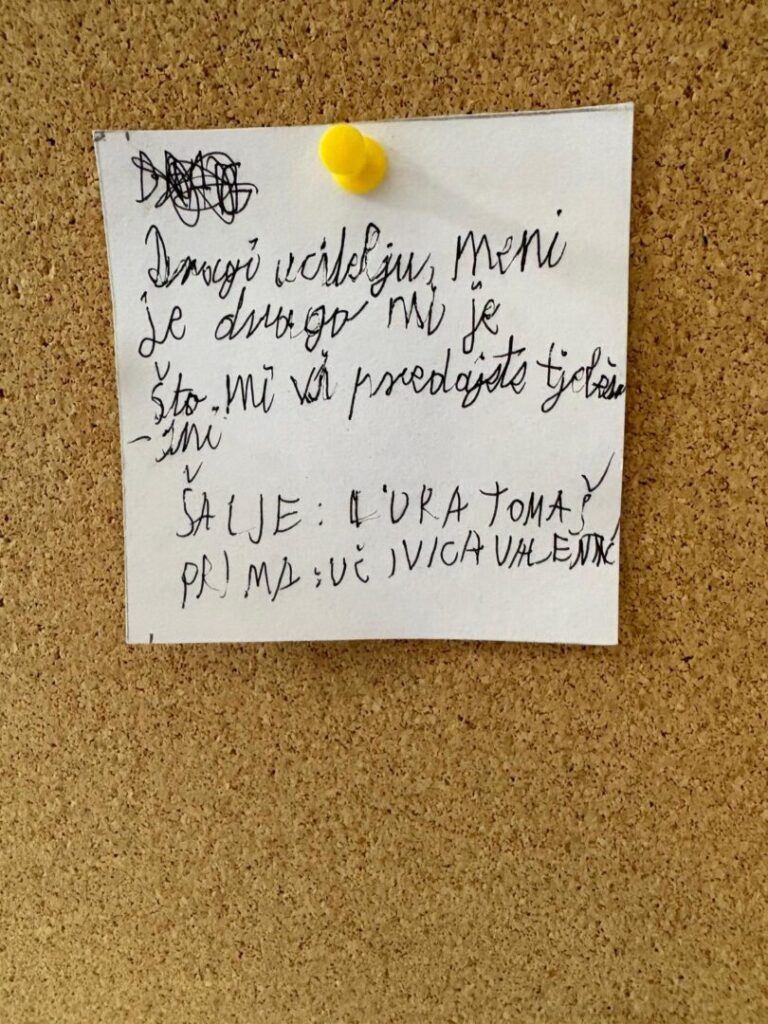 Dragi učitelju, meni
je drago mi je
što mi vi predajete tjeles
-zni
ŠALJE: LURA TOMAŠ
PRIMA: UČ IVICA VALENTIĆ